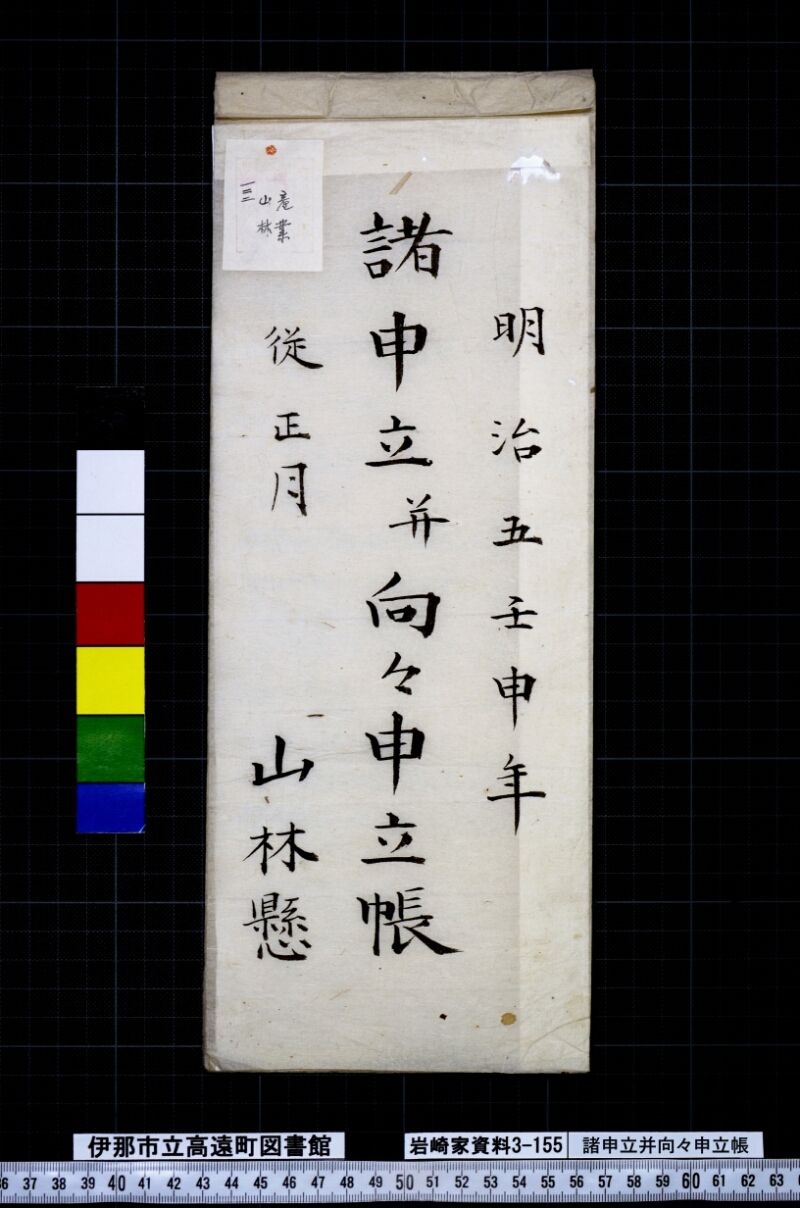 明治五壬申年
諸申立并向々申立帳
従正月
山林懸
産業
山林
一三二
伊那市立高遠町図書館
岩崎家資料3-155
諸申立并向々申立帳
36 37 38 39 40 41 42 43 44 45 46 47 48 49 50 51 52 53 54 55 56 57 58 59 60 61 62 63